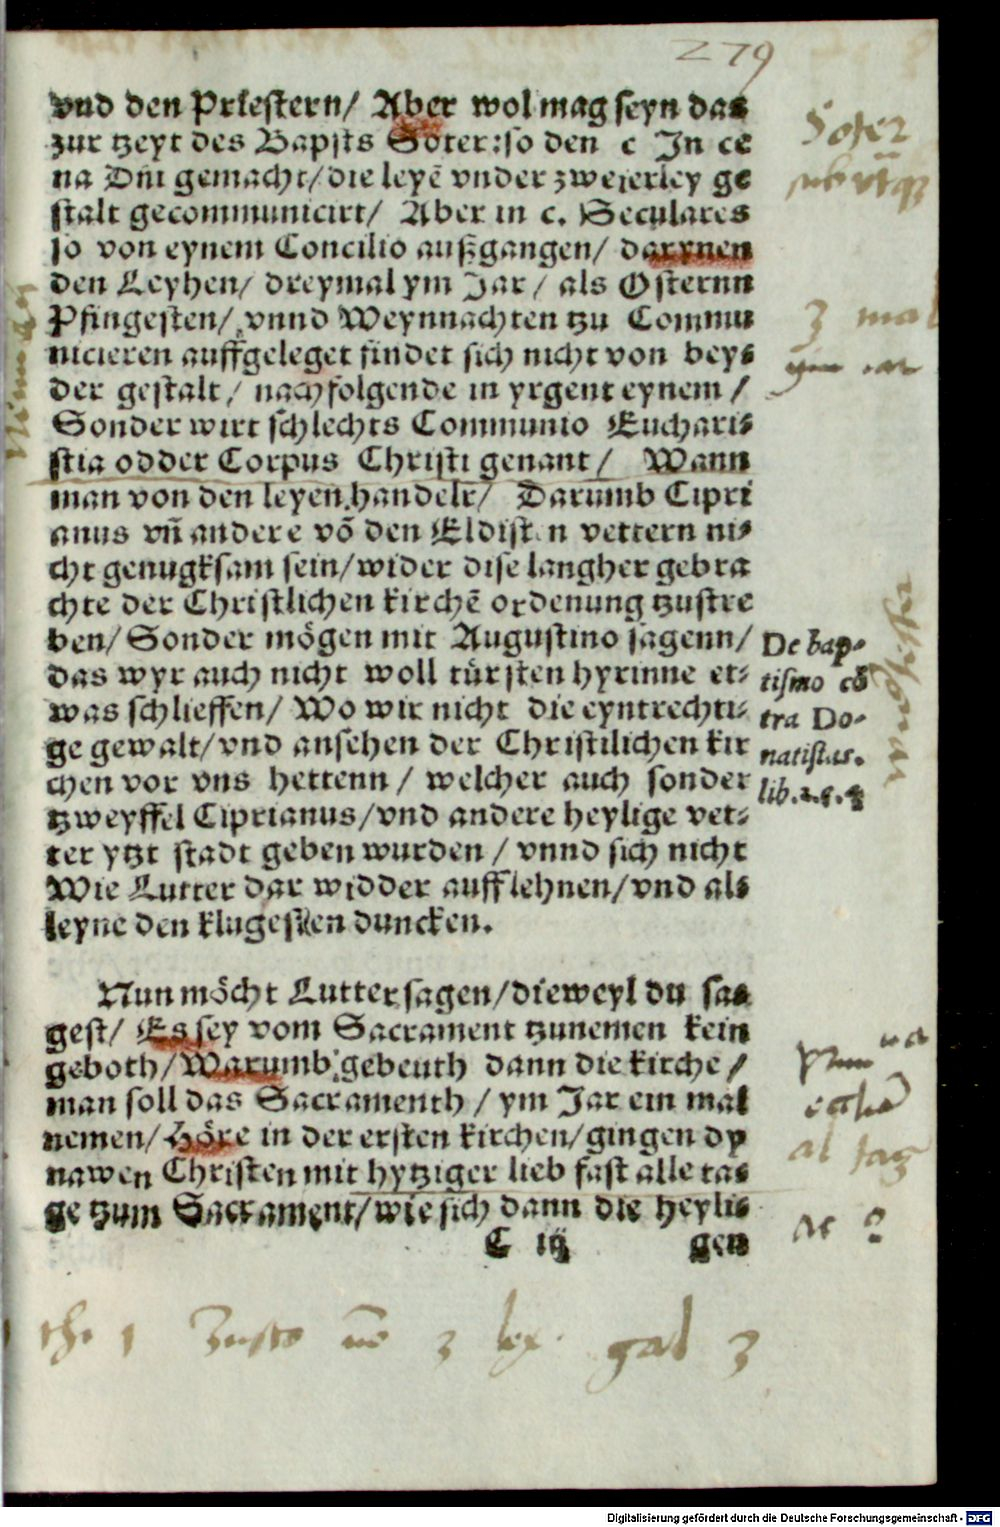 279
vnd den Priestern/ Aber wol mag seyn das
zur tzeyt des Bapsts Soter:so den c In ce
na Dn̄i gemacht/die leyē vnder zweierley ge
stalt gecommunicirt/ Aber in c. Seculares
so von eynem Concilio außgangen/ darynen
den Leyhen/ dreymal ym Jar/ als Osternn
Pfingesten/ vnnd Weynnachten tzu Commu
nicieren auffgeleget findet sich nicht von bey⸗
der gestalt/ nachfolgende in yrgent eynem/
Sonder wirt schlechts Communio Euchari⸗
stia odder Corpus Christi genant/ Wann
man von den leyen handelt/ Darumb Cipri
anus vn̄ andere vō den Eldisten vettern ni⸗
cht genugksam sein/wider dise langher gebra
chte der Christlichen kirchē ordenung tzustre
ben/ Sonder mögen mit Augustino sagenn/
das wyr auch nicht woll türsten hyrinne et⸗
was schlieffen/ Wo wir nicht die eyntrechti⸗
ge gewalt/vnd ansehen der Christilichen kir
chen vor vns hettenn/ welcher auch sonder
tzweyffel Ciprianus/vnd andere heylige vet⸗
ter ytzt stadt geben wurden/ vnnd sich nicht
Wie Lutter dar widder aufflehnen/vnd als
leyne den klugesten duncken.
Nun möcht Lutter sagen/dieweyl du sa⸗
gest/ Es sey vom Sacrament tzunemen kein
geboth/Warumb gebeuth dann die kirche/
man soll das Sacramenth/ ym Jar ein mal
nemen/Höre in der ersten kirchen/gingen dy
nawen Christen mit hytziger lieb fast alle ta⸗
ge tzum Sacrament/wie sich dann die heyli⸗
C iij gen
Soter
3 mal
ym iar
De bap⸗
tismo cō
tra Do⸗
natistas.
lib.2.c.4
al tag